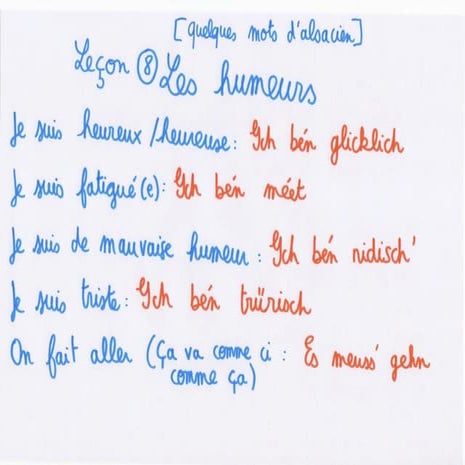 [quelques mots d'alsacien]
Leçon ⑧ Les humeurs
Je suis heureux/heureuse: Ich bén glicklich
Je suis fatigué(e): Ich bén méet
Je suis de mauvaise humeur: Ich bén nidisch'
Je suis triste: Ich bén trürisch
On fait aller (Ça va comme ci : Es meuss' gehn
comme ça)